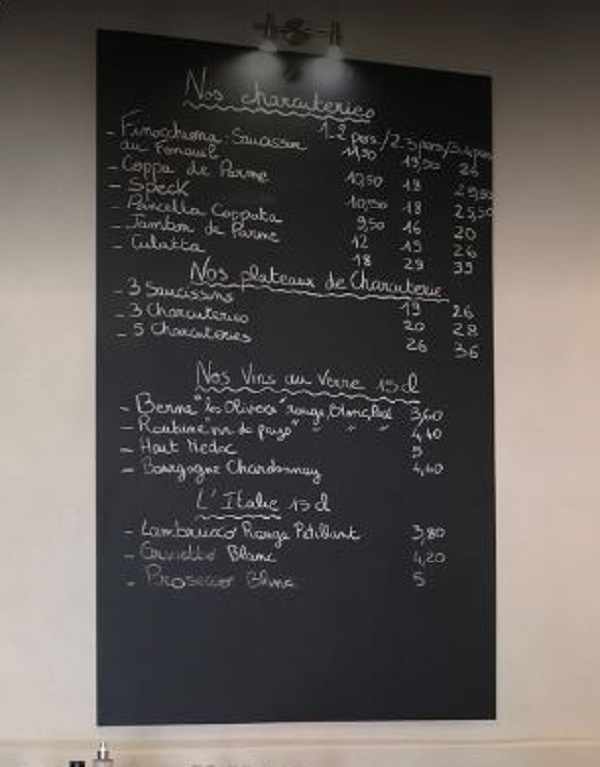 Nos charcuteries
1-2 pers / 2-3 pers / 3-4 pers
- Finocchiona : Saucisson 11,50 19,50 26
au Fenouil
- Coppa de Parme 10,50 18 24,50
- Speck 10,50 18 25,50
- Pancetta Coppata 9,50 16 20
- Jambon de Parme 12 19 26
- Culatta 18 29 39
Nos plateaux de Charcuterie
- 3 Saucissons 19 26
- 3 Charcuteries 20 28
- 5 Charcuteries 26 36
Nos Vins au Verre 15 cl
- Berne "les Oliviers" rouge, blanc, 3,60
- "vin de pays" " " " 4,40
- Haut Medoc 5
- Bourgogne Chardonnay 4,40
L'Italie 15 cl
- Lambrusco Rouge Pétillant 3,80
- Orvietto Blanc 4,20
- Prosecco Blanc 5